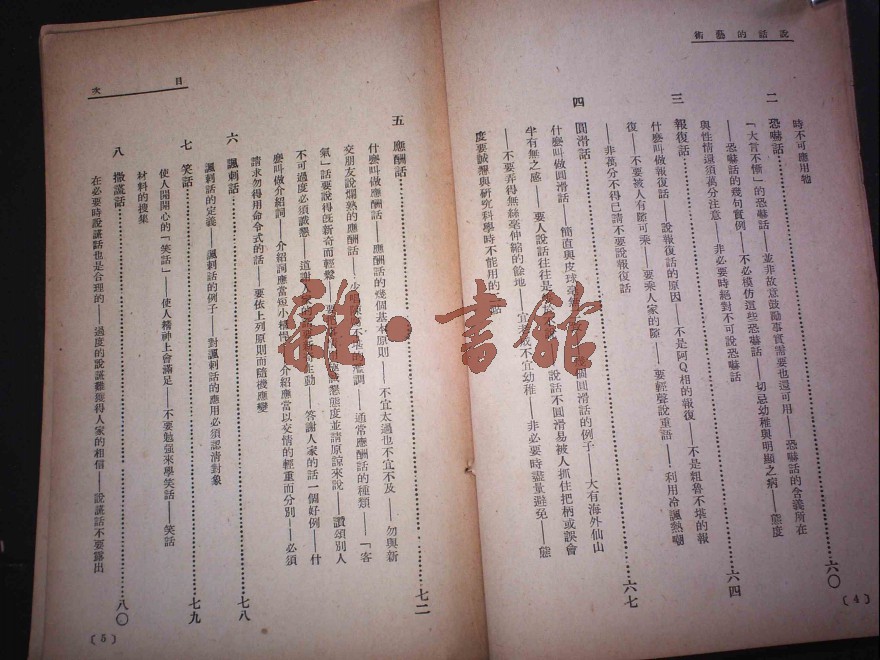 說話的藝術
時不可應用牠
二 恐嚇話……六〇
「大言不慚」的恐嚇話——並非故意鼓勵事實需要也還可用——恐嚇話的含義所在
——恐嚇話的幾句實例——不必模仿這些恐嚇話——切忌幼稚與明顯之病——態度
與性情還須萬分注意——非必要時絕對不可說恐嚇話
三 報復話……六四
什麼叫做報復話——說報復話的原因——不是阿Q相的報復——不是粗魯不堪的報
復——不要被人有隙可乘——要乘人家的隙——要輕聲說重語——利用冷諷熱嘲
——非萬分不得已請不要說報復話
四 圓滑話……六七
什麼叫做圓滑話——簡直與皮球
圓滑話的例子——大有海外仙山
半有無之感——要人說話往往是
說話不圓滑易被人抓住把柄或誤會
——不要弄得無絲毫伸縮的餘地——宜
不宜幼稚——非必要時盡量避免——態
度要誠懇與研究科學時不能用的
(4)
目次
五 應酬話……七二
什麼叫做應酬話——應酬話的幾個基本原則——不宜太過也不宜不及——勿與新
交朋友說爛熟的應酬話——少唱
不堪的濫調——通常應酬話的種類——「客
氣」話要說得旣新奇而輕鬆——要
誠懇態度並請原諒來說——讚頌別人
不可過度必須誠懇——道謝
生動——答謝人家的話一個好例——什
麼叫做介紹詞——介紹詞應當短小精悍
介紹應當以交情的輕重而分別——必須
請求勿得用命令式的話——要依上列原則而隨機應變
六 諷刺話……七八
諷刺話的定義——諷刺話的例子——對諷刺話的應用必須認清對象
七 笑話……七九
使人開開心的「笑話」——使人精神上會滿足——不要勉强來學笑話——笑話
材料的搜集
八 撒謊話……八〇
在必要時說謊話也是合理的——過度的說謊難獲得人家的相信——說謊話不要露出
(5)
雅·書館